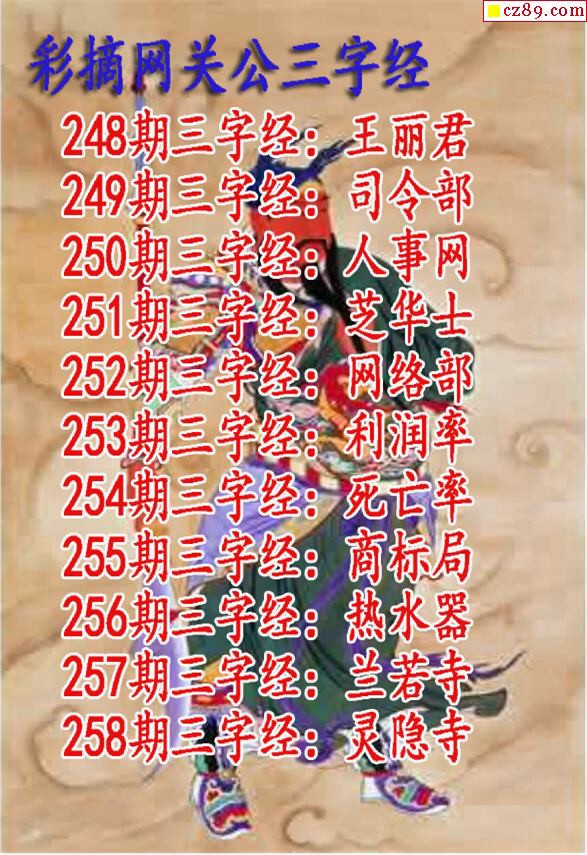 cz89.com
彩摘网关公三字经
248期三字经：王丽君
249期三字经：司令部
250期三字经：人事网
251期三字经：芝华士
252期三字经：网络部
253期三字经：利润率
254期三字经：死亡率
255期三字经：商标局
256期三字经：热水器
257期三字经：兰若寺
258期三字经：灵隐寺